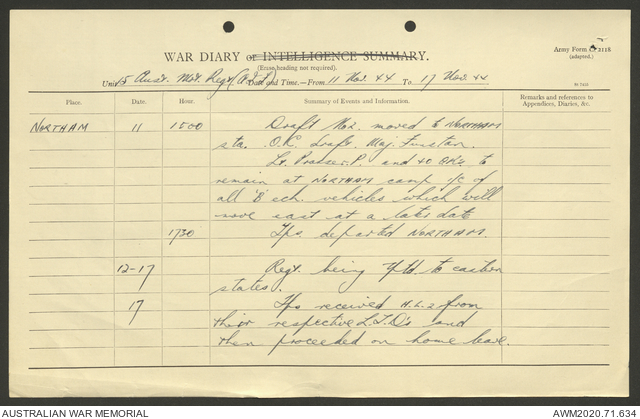 WAR DIARY or INTELLIGENCE SUMMARY.
(Erase heading not required).
Army Form C 2118
(adapted.)
Unit 15 Aust. Mot. Regt (A.I.F) Date and Time.—From 11 Nov. 44 To 17 Nov. 44
Place. Date. Hour. Summary of Events and Information. Remarks and references to
Appendices, Diaries, &c.
NORTHAM 11 1500 Draft moved to NORTHAM
sta. O.C. draft. Maj.
Lt. P. and 40 ORs to
remain at NORTHAM camp i/c of
all 'B' ech. vehicles which will
move east at a later date
1730 Tps departed NORTHAM.
12-17 Regt. being to eastern
states.
17 Tps received from
their respective L.T.D's and
then proceeded on home leave.
AUSTRALIAN WAR MEMORIAL AWM2020.71.634